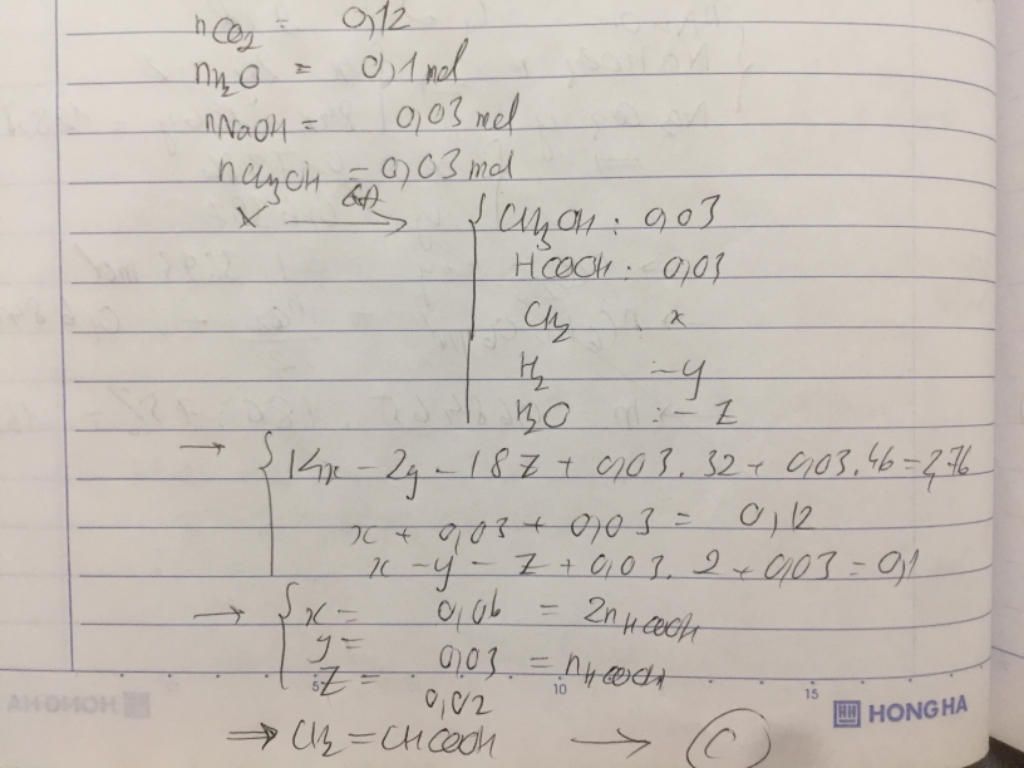 nCO2 = 0,12
nH2O = 0,1 mol
nNaOH = 0,03 mol
nCH3OH = 0,03 mol
X → { CH3OH : 0,03
HCOOH : 0,03
CH2 x
H2 -y
H2O : -z
→ { 14x - 2y - 18z + 0,03.32 + 0,03.46 = 2,76
x + 0,03 + 0,03 = 0,12
x - y - z + 0,03.2 + 0,03 = 0,1
→ { x = 0,06 = 2nHCOOH
y = 0,03 = nHCOOH
z = 0,02
5 10 15
HH HONG HA
⇒ CH2=CHCOOH → C